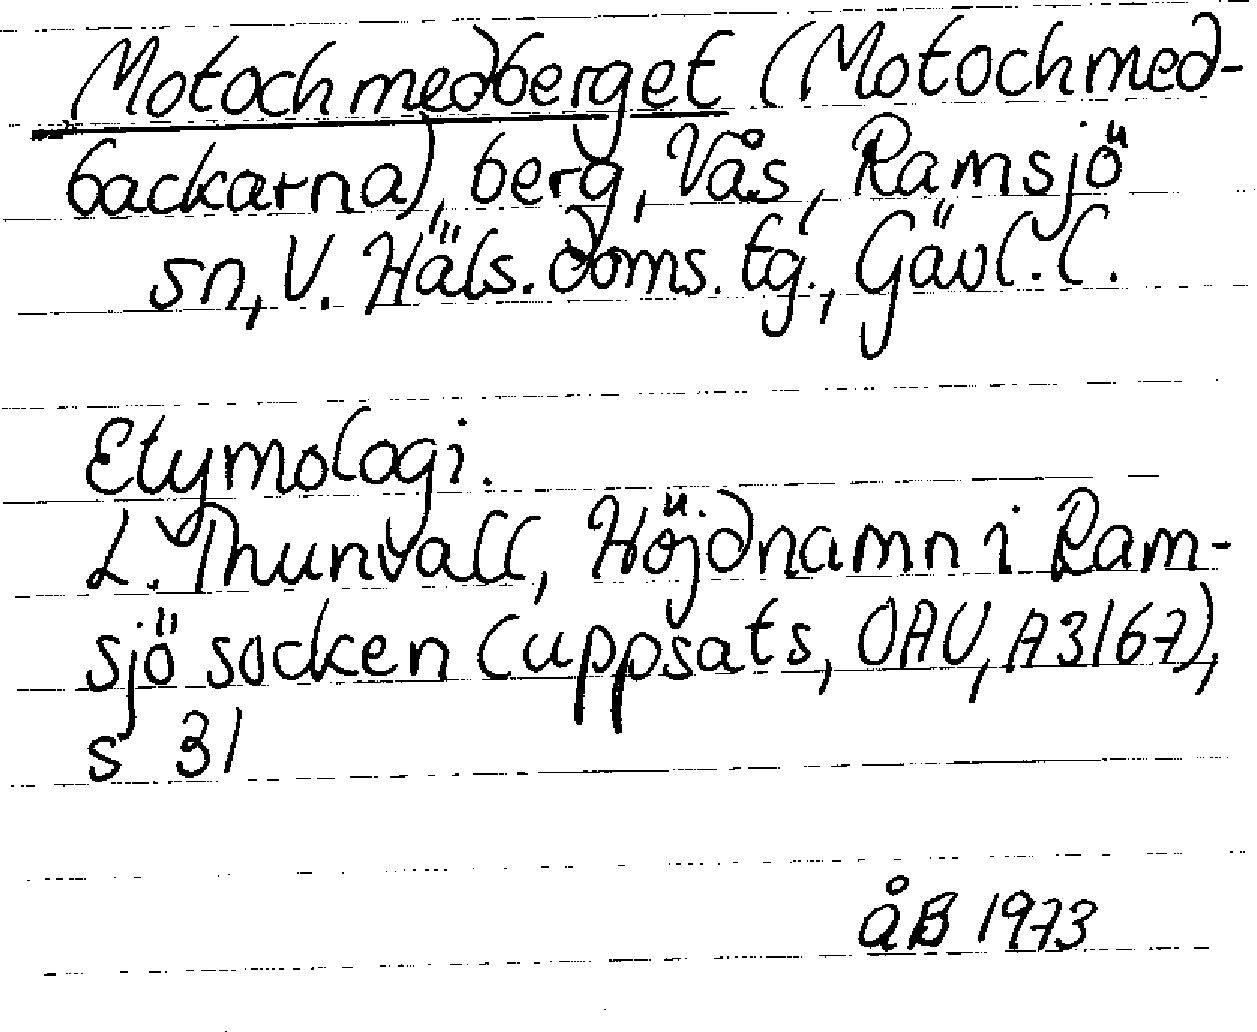 Motochmedberget (Motochmed-
backarna), berg, Vås, Ramsjö
sn, V. Häls. doms. tg., Gävl. l.
Etymologi.
L. Thunvall, Höjdnamn i Ram-
sjö socken (uppsats, OAU, A3167),
s 31
åB 1973